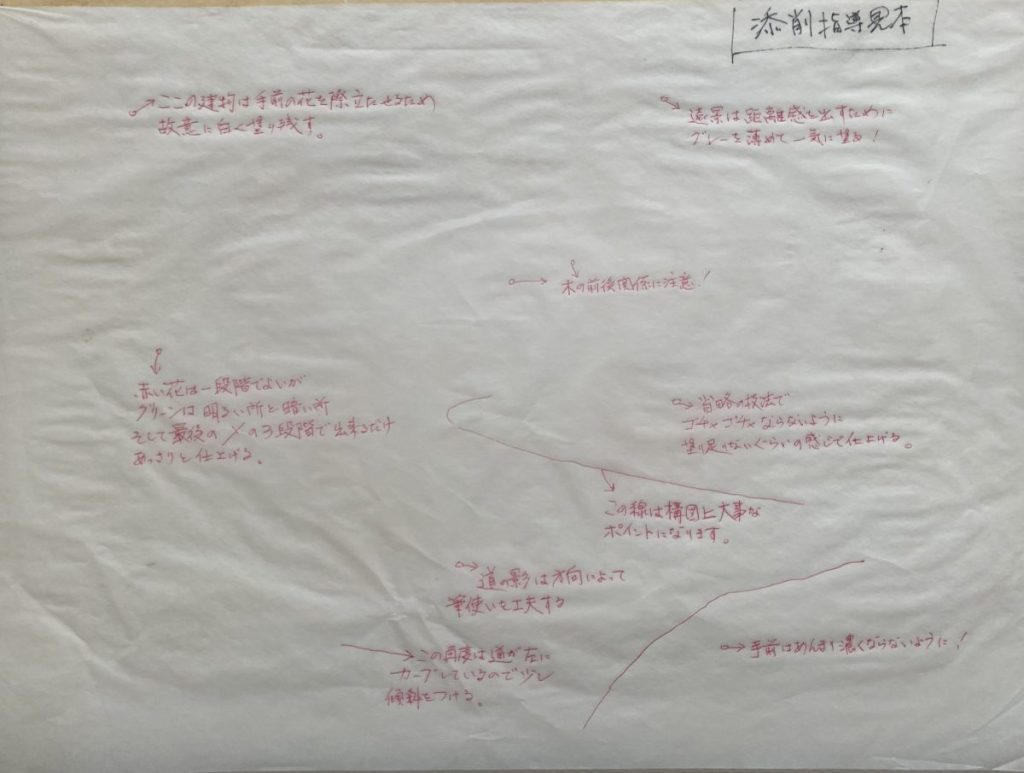 添削指導見本
ここの建物は手前の花を際立たせるため
故意に白く塗り残す。
遠景は距離感を出すために
グレーを薄めて一気に塗る!
木の前後関係に注意!
赤い花は一段階でよいが
グリーンは明るい所と暗い所
そして最後の〆の3段階で出来るだけ
あっさりと仕上げる。
省略の技法で
ゴチャゴチャならないように
塗り足りないぐらいの感じで仕上げる。
この線は構図上大事な
ポイントになります。
道の影は方向によって
筆使いを工夫する
この角度は道が左に
カーブしているので少し
傾斜をつける。
手前はあんまり濃くならないように!